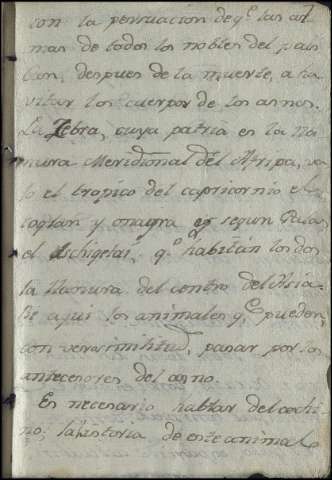 con la persuacion de q.e las al
mas de todos los nobles del pais
ban, despues de la muerte, a ha
vitar los cuerpos de los asnos.
La Zebra, cuya patria es la lla
nura Meridional del Africa, va
jo el tropico del capricornio el
y onagra es segun Palas
el dschigetai, q.e habitan los dos
la llanura del centro del Asia
He aqui los animales q.e pueden,
con verosimilitud, pasar por los
antecesores del asno.
Es necesario hablar del cochi
no; la historia de este animal